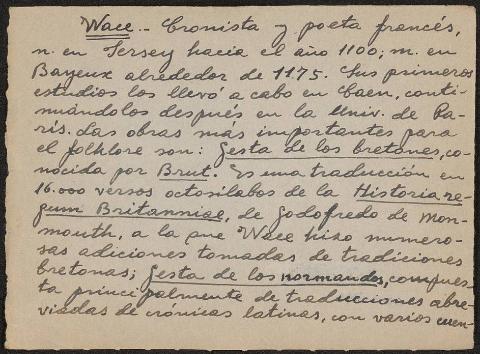 Wace.- Cronista y poeta francés,
n. en Jersey hacia el año 1100; m. en
Bayeux alrededor de 1175. Sus primeros
estudios los llevó a cabo en Caen, conti-
nuándolos después en la Univ. de Pa-
rís. Las obras más importantes para
el folklore son: Gesta de los bretones, co-
nocida por Brut. Es una traducción en
16.000 versos octosílabos de la Historia re-
gum Britanniae, de Godofredo de Mon-
mouth, a la que Wace hizo numero-
sas adiciones tomadas de tradiciones
bretonas; Gesta de los normandos, compues-
ta principalmente de traducciones abre-
viadas de crónicas latinas, con varios cuen-